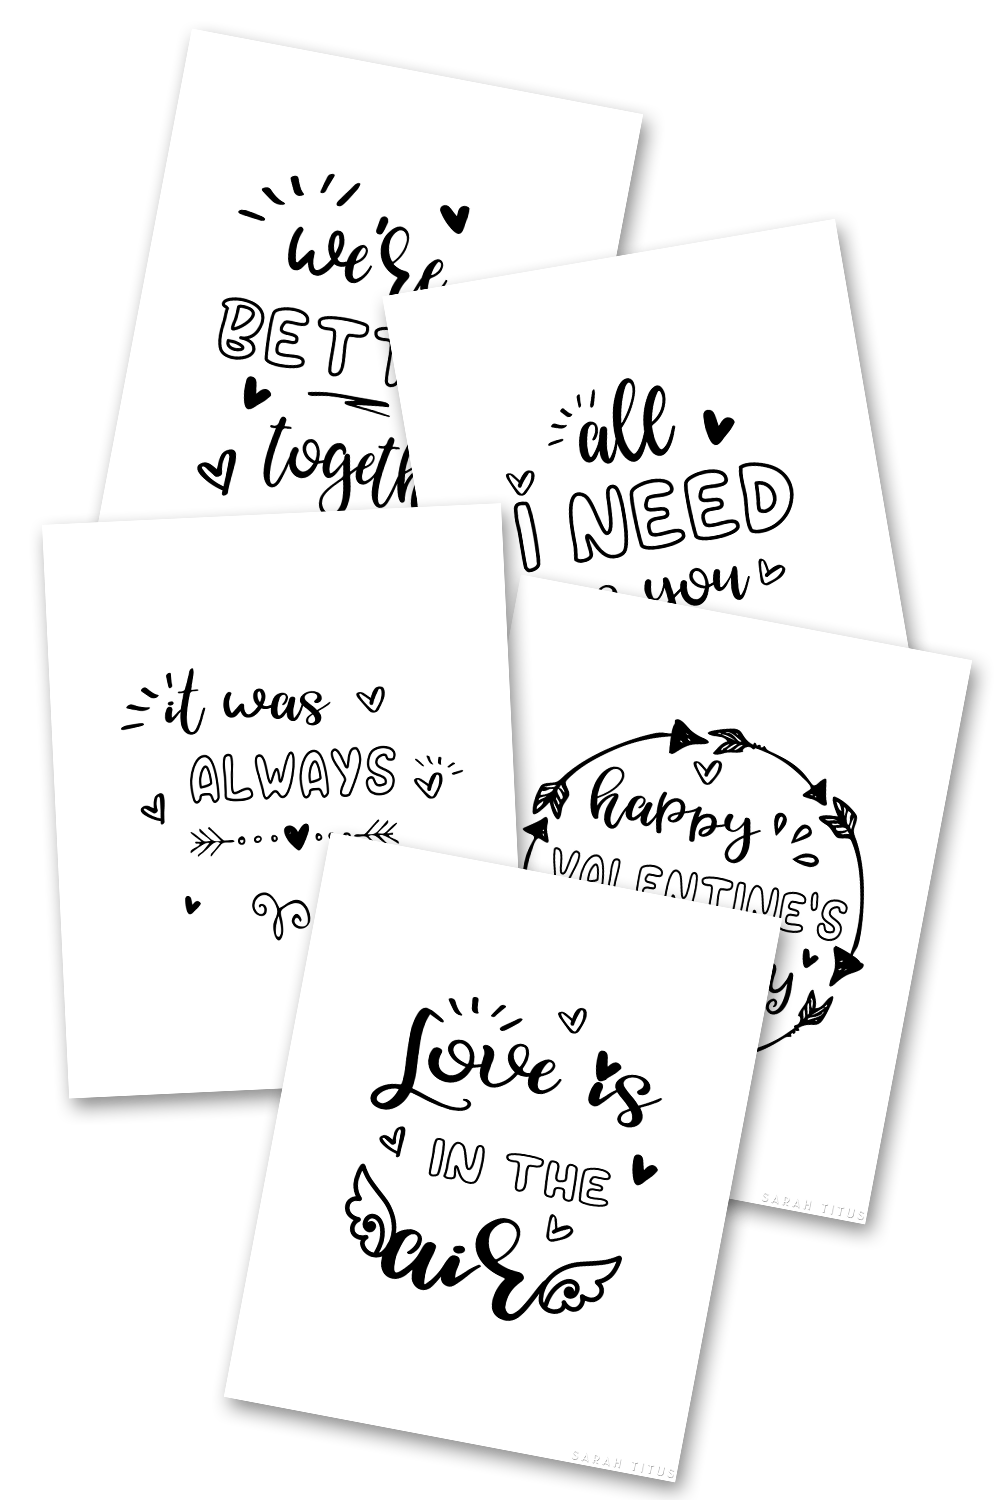 we're
BETT
togeth
all
i NEED
you
it was
ALWAYS
happy
VALENTINE'S
y
SARAH TITUS
Love is
IN THE
air
SARAH TITUS